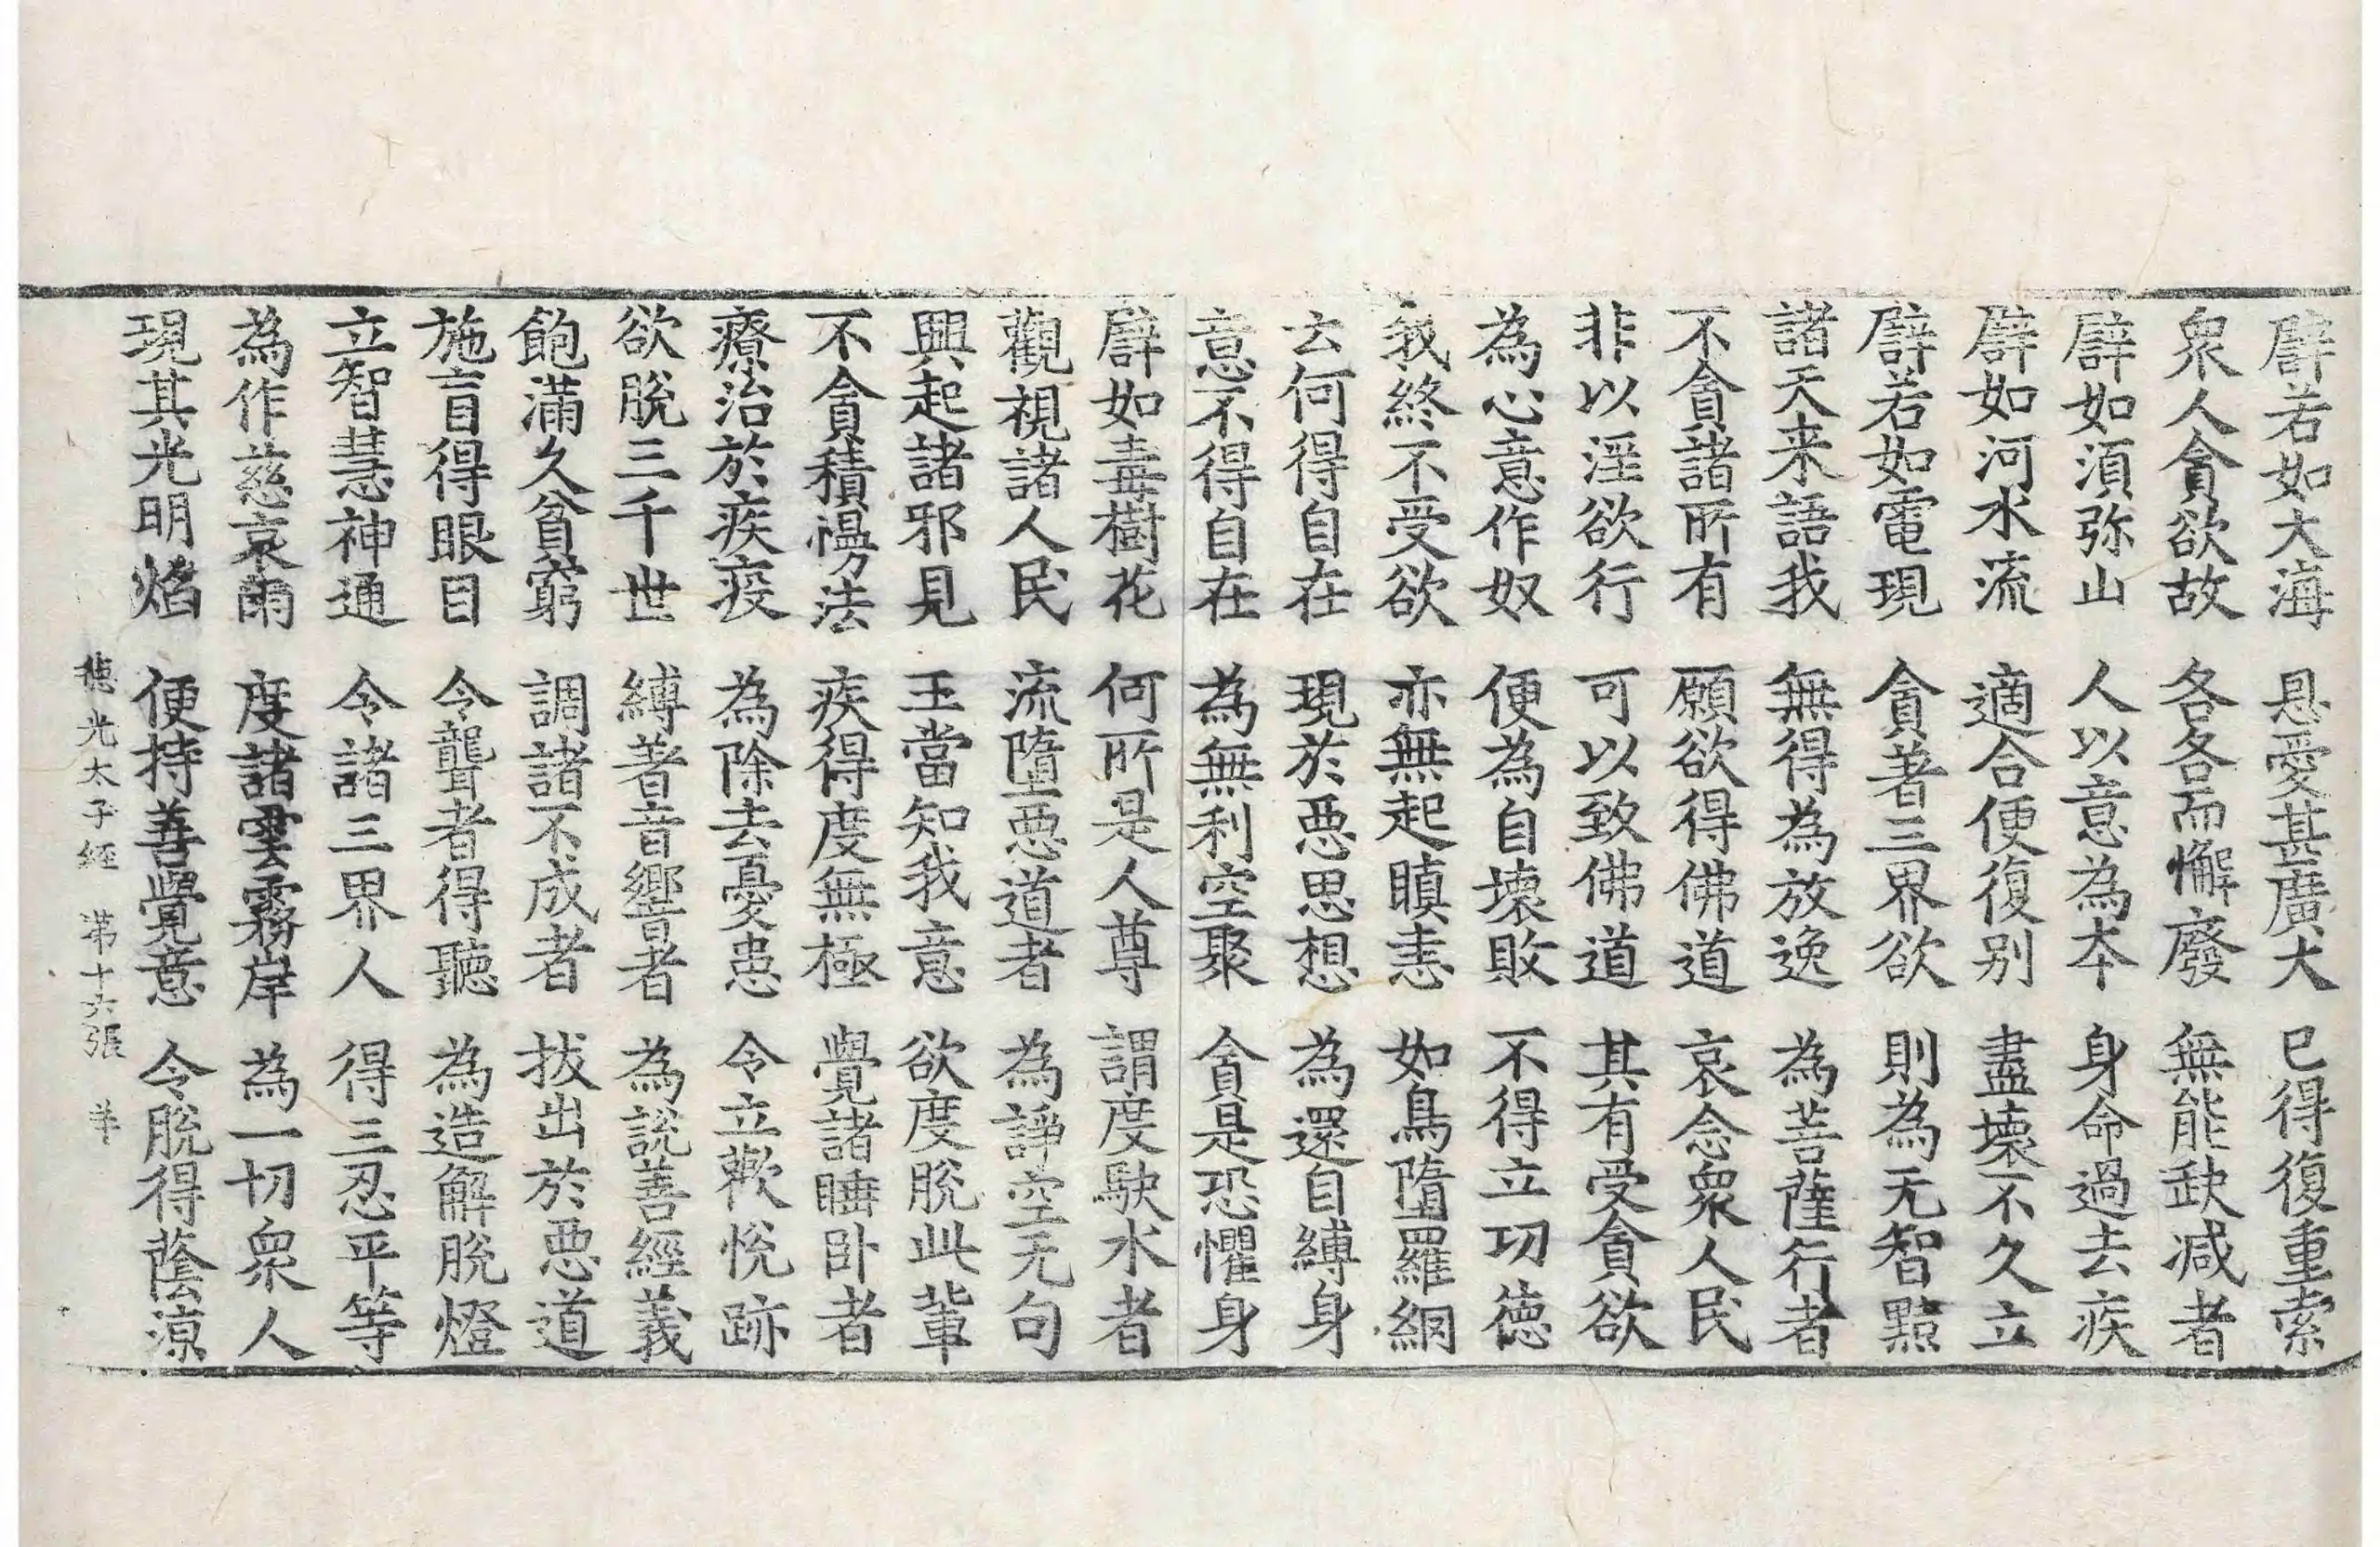 譬若如大海　恩愛甚廣大　已得復重索
衆人貪欲故　各各而懈廢　無能缺減者
譬如須弥山　人以意為本　身命過去疾
譬如河水流　適合便復別　盡壞不久立
譬若如電現　貪著三界欲　則為无智黠
諸天来語我　無得為放逸　為菩薩行者
不貪諸所有　願欲得佛道　哀念衆人民
非以淫欲行　可以致佛道　其有受貪欲
為心意作奴　便為自壞敗　不得立功德
我終不受欲　亦無起瞋恚　如鳥墮羅網
云何得自在　現於惡思想　為還自縛身
意不得自在　為無利空聚　貪是恐懼身
譬如毒樹花　何所是人尊　謂度駛水者
觀視諸人民　流墮惡道者　為諍空无句
興起諸邪見　王當知我意　欲度脫此輩
不貪積慢法　疾得度無極　覺諸睡卧者
療治於疾疫　為除去憂患　令立歡悅跡
欲脫三千世　縛著音響者　為說善經義
飽滿久貧窮　調諸不成者　拔出於惡道
施盲得眼目　令聾者得聽　為造解脫燈
立智慧神通　令諸三界人　得三忍平等
為作慈哀雨　度諸雲霧岸　為一切衆人
現其光明焰　便持善覺意　令脫得蔭涼
德光太子經　第十六張　羊